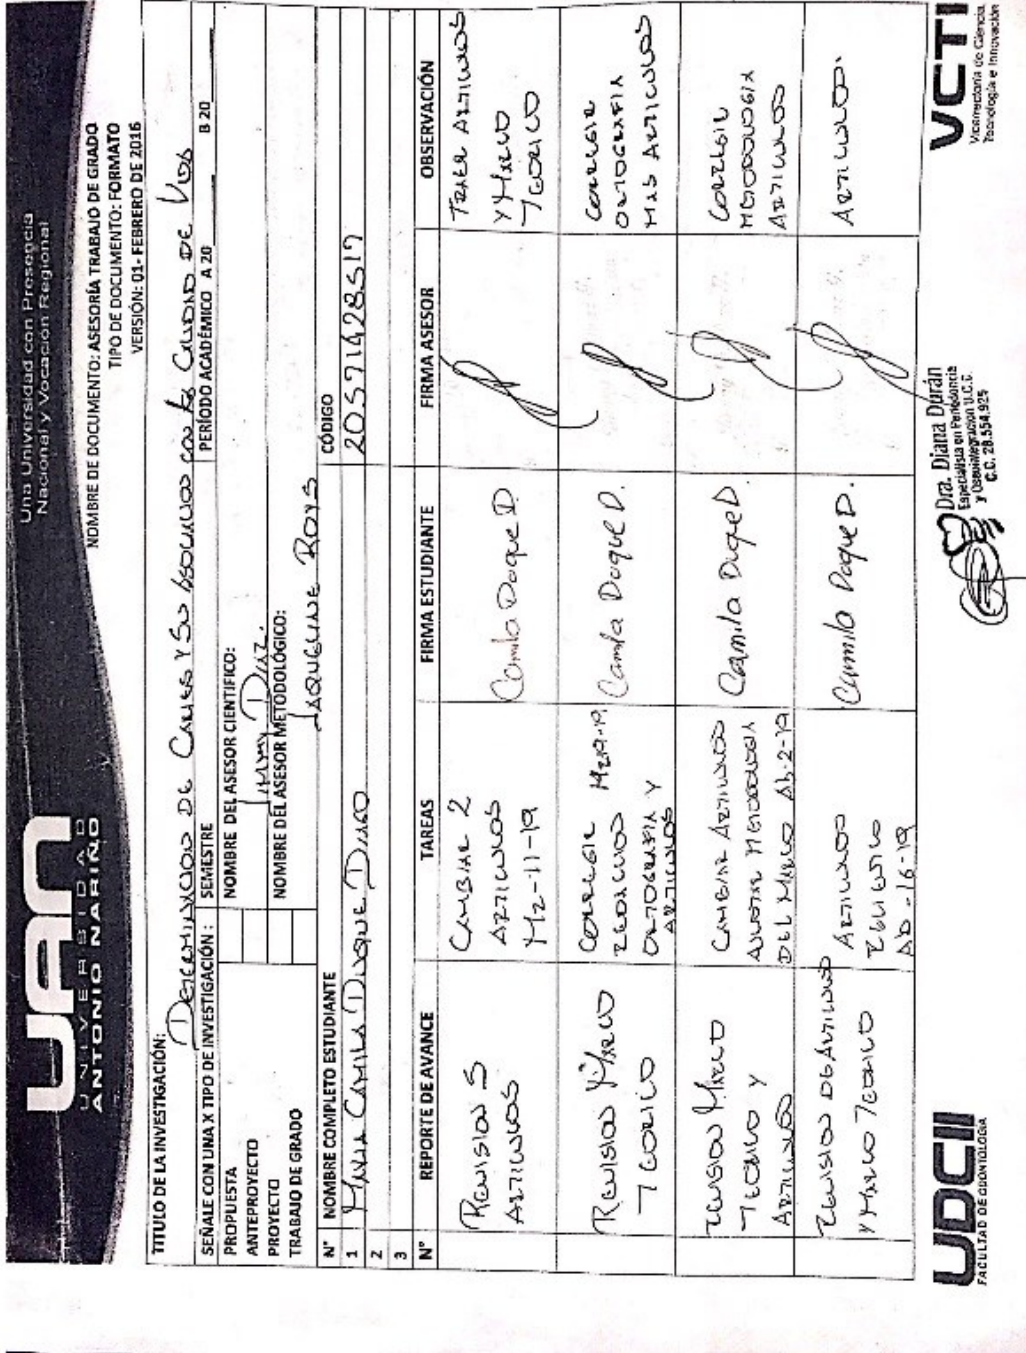 UAN
UNIVERSIDAD
ANTONIO NARIÑO
Una Universidad con Presencia
Nacional y Vocación Regional
NOMBRE DE DOCUMENTO: ASESORÍA TRABAJO DE GRADO
TIPO DE DOCUMENTO: FORMATO
VERSIÓN: 01- FEBRERO DE 2016
TITULO DE LA INVESTIGACIÓN:
DE CARIES Y SU CON LA CALIDAD DE VIDA
SEÑALE CON UNA X TIPO DE INVESTIGACIÓN : SEMESTRE PERÍODO ACADÉMICO A 20____ B 20____
PROPUESTA NOMBRE DEL ASESOR CIENTIFICO:
ANTEPROYECTO DIAZ.
PROYECTO NOMBRE DEL ASESOR METODOLÓGICO:
TRABAJO DE GRADO ROYS
N° NOMBRE COMPLETO ESTUDIANTE CÓDIGO
1 CAMILA DUQUE 20571428517
2
3
N° REPORTE DE AVANCE TAREAS FIRMA ESTUDIANTE FIRMA ASESOR OBSERVACIÓN
REVISION 5 ARTICULOS
CAMBIAR 2 ARTICULOS MZ-11-19
Camila Duque D.
TRAER ARTICULOS Y MARCO TEORICO
REVISION MARCO TEORICO
CORREGIR ORTOGRAFIA Y ARTICULOS
Camila Duque D.
CORREGIR ORTOGRAFIA MAS ARTICULOS
REVISION MARCO TEORICO Y ARTICULOS
CAMBIAR ARTICULOS DEL MARCO Ab-2-19
Camila Duque D.
CORREGIR METODOLOGIA ARTICULOS
REVISION DE ARTICULOS Y MARCO TEORICO
ARTICULOS AB-16-19
Camila Duque D.
ARTICULOS.
UDCII
FACULTAD DE ODONTOLOGÍA
Dra. Diana Durán
Especialista en Periodoncia
y Oseointegracion U.C.C.
C.C. 28.554.925
VCTI
Vicerrectoría de Ciencia,
Tecnología e Innovación